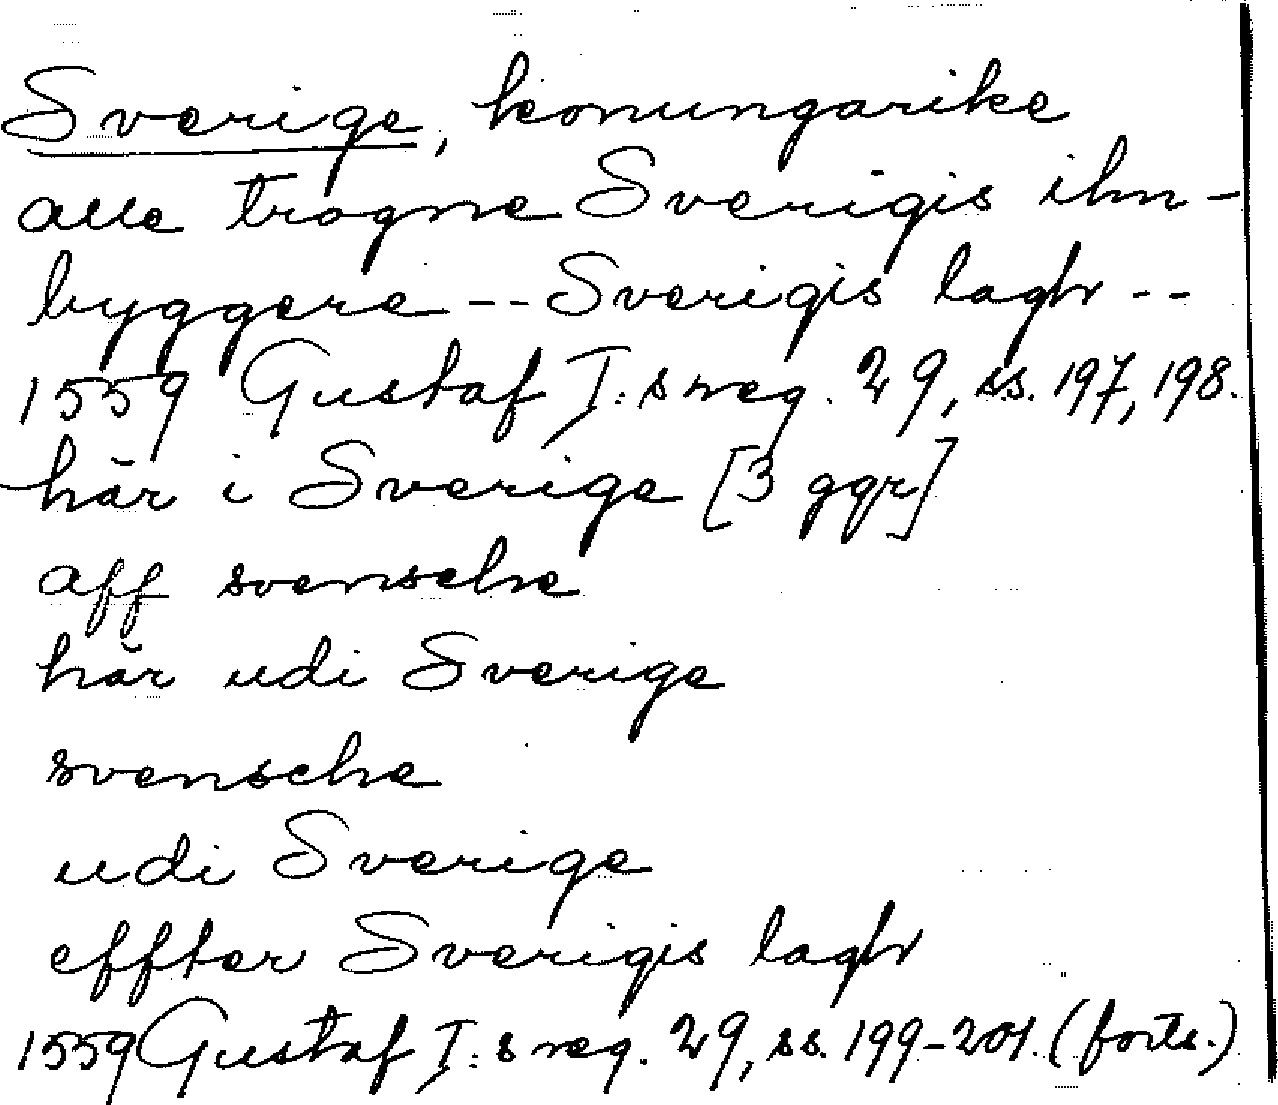 Sverige, konungarike
alle trogne Sverigis ihn-
byggere -- Sverigis lagh --
1559 Gustaf I:s reg. 29, ss. 197, 198.
här i Sverige [3 ggr]
aff svensche
här udi Sverige
svensche
udi Sverige
effter Sverigis lagh
1559 Gustaf I:s reg. 29, ss. 199-201. (forts.)